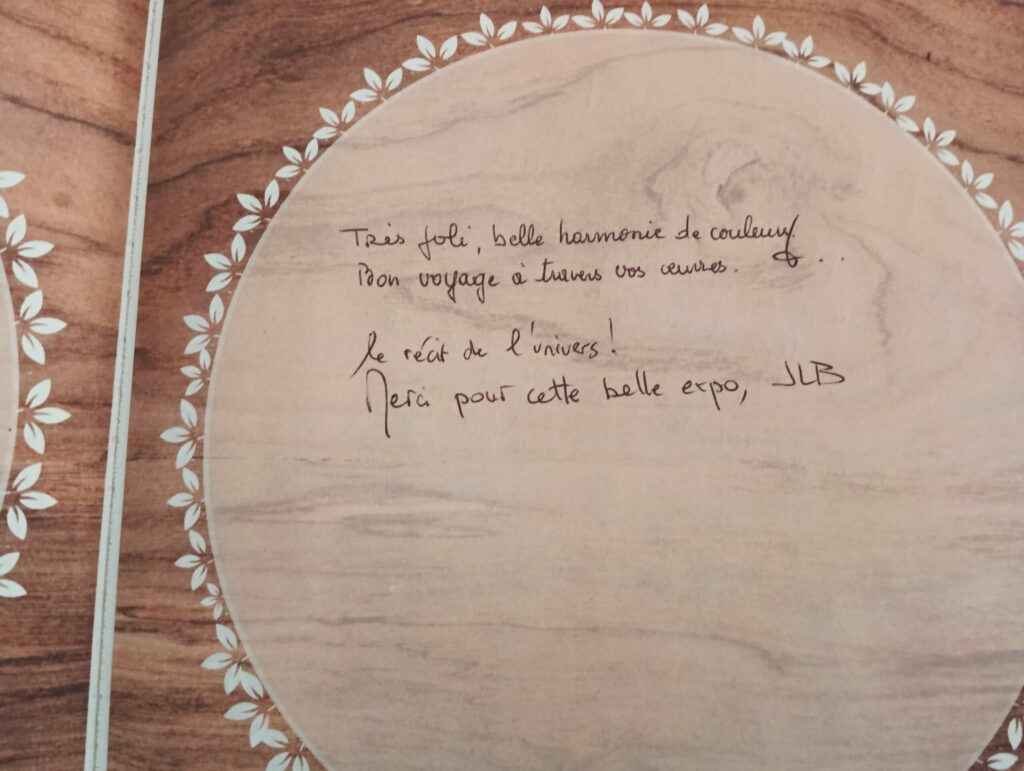 Très joli, belle harmonie de couleurs.
Bon voyage à travers vos œuvres. ...
le récit de l'univers !
Merci pour cette belle expo, JLB